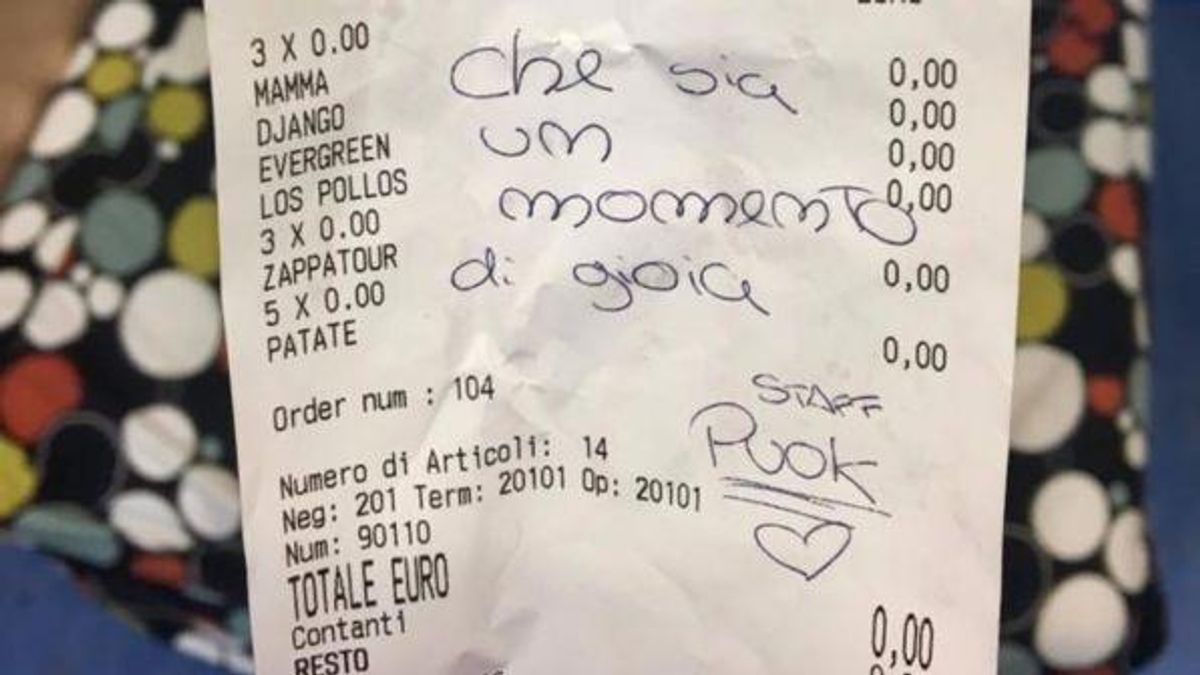 3 X 0.00
MAMMA 0,00
DJANGO 0,00
EVERGREEN 0,00
LOS POLLOS 0,00
3 X 0.00
ZAPPATOUR 0,00
5 X 0.00
PATATE 0,00
Che sia
un
momento
di gioia
STAFF
PUOK
Order num : 104
Numero di Articoli: 14
Neg: 201 Term: 20101 Op: 20101
Num: 90110
TOTALE EURO 0,00
Contanti
RESTO